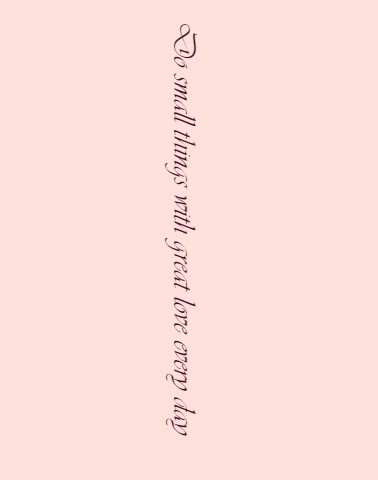 Do small things with great love every day